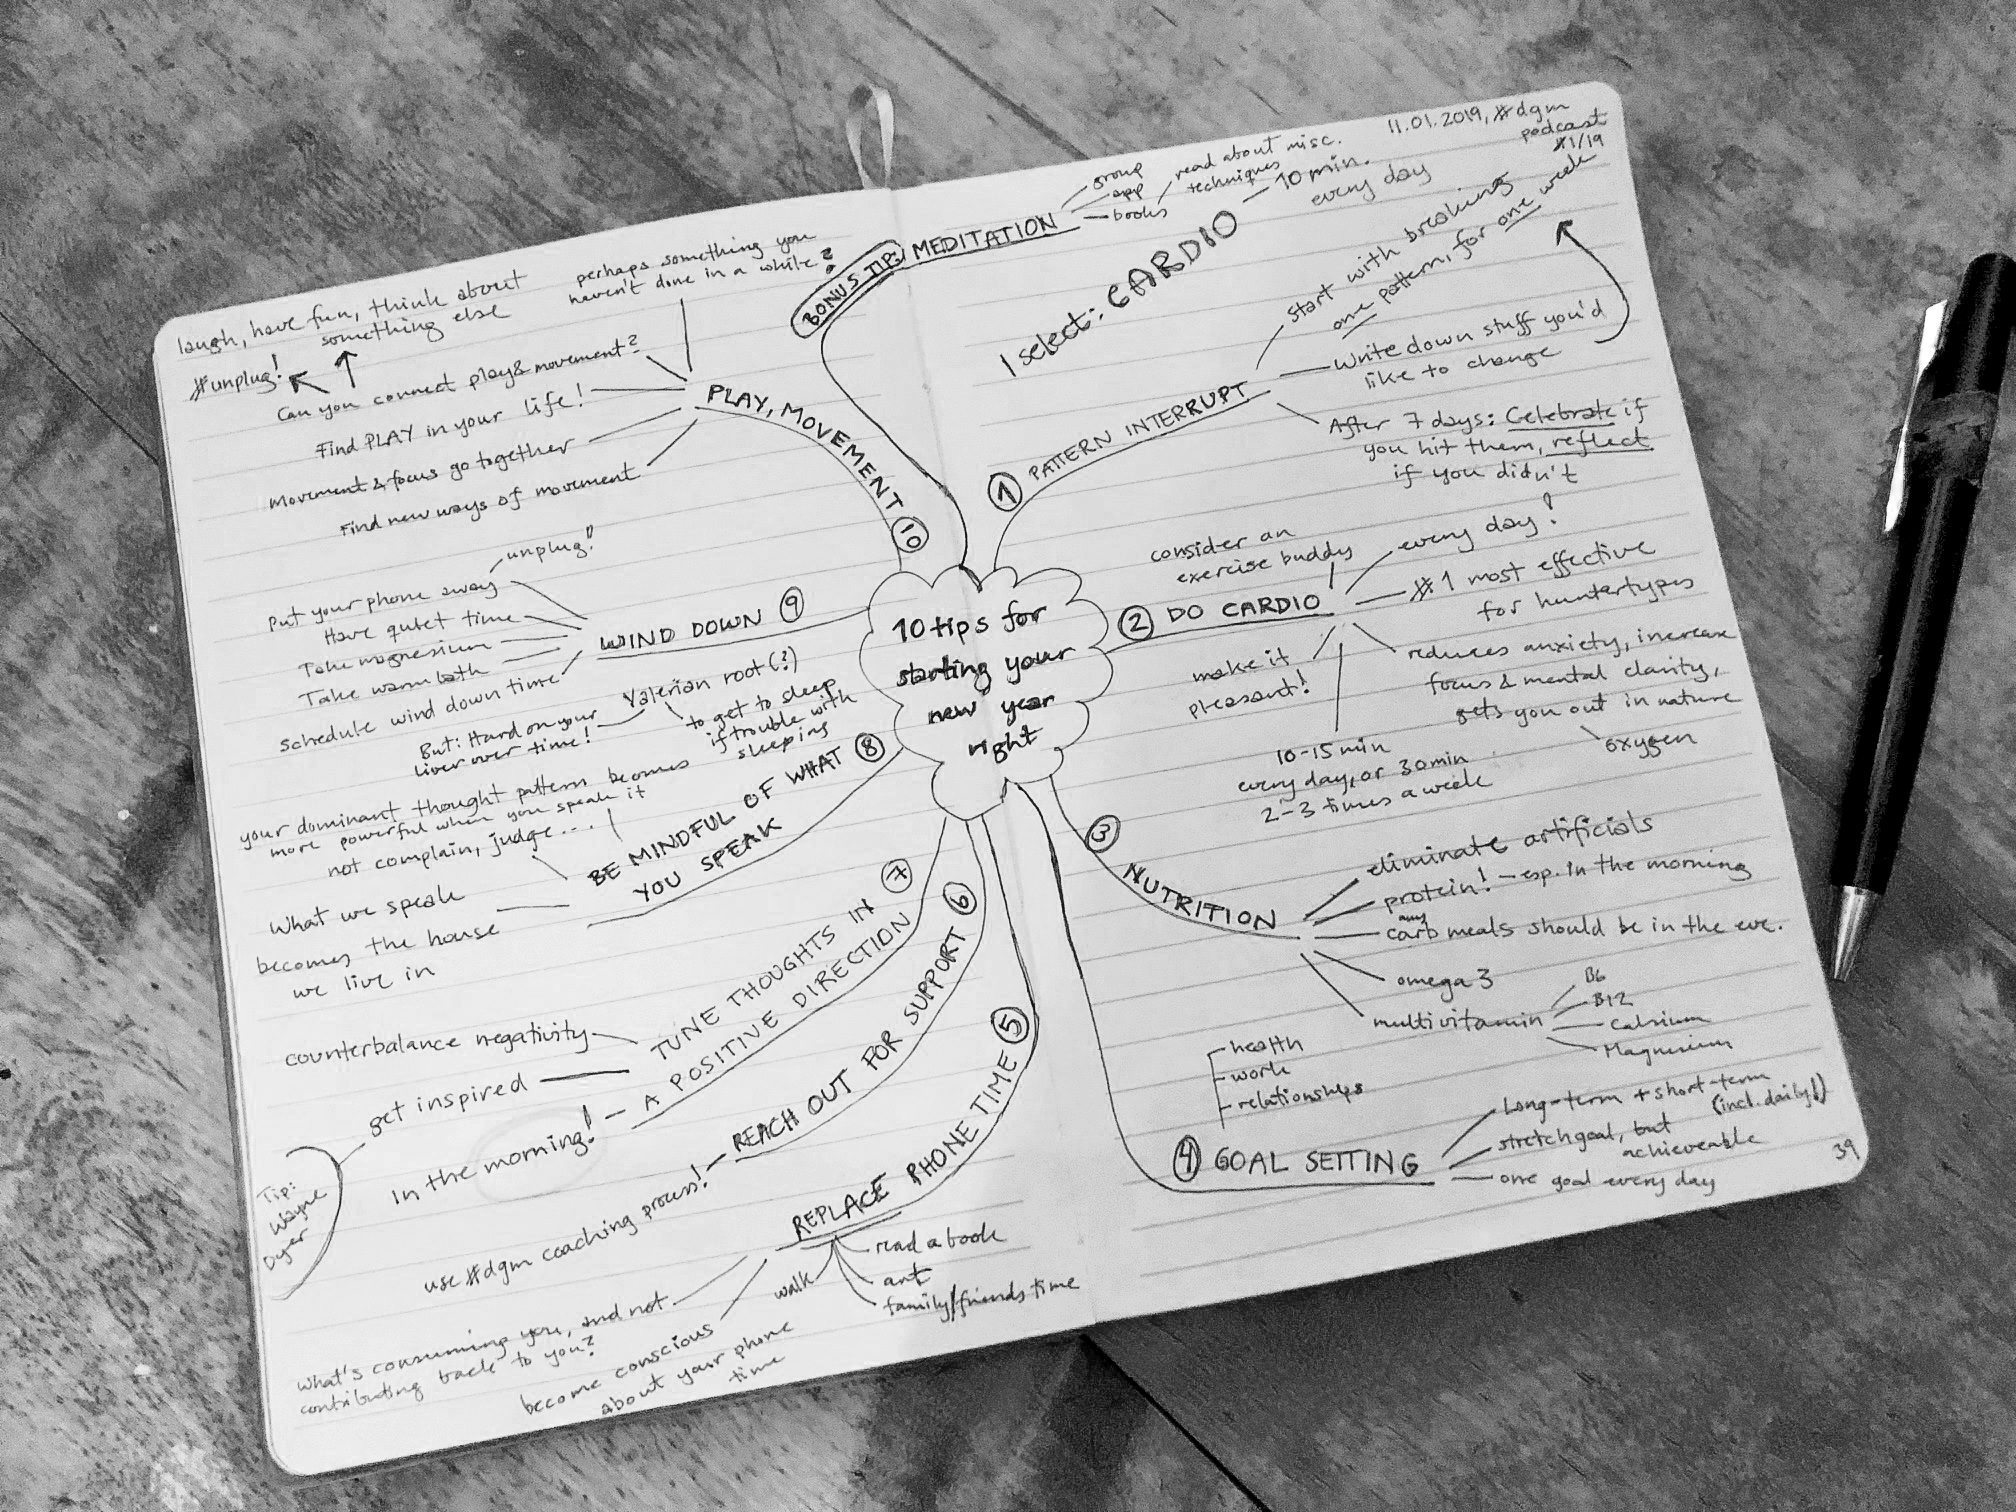 11.01.2019, #dgm
podcast
#1/19
10 tips for
starting your
new year
right
BONUS TIP: MEDITATION
group
app
books
read about misc.
techniques
I select: CARDIO
10 min.
every day
① PATTERN INTERRUPT
Start with breaking
one pattern, for one week
Write down stuff you'd
like to change
After 7 days: Celebrate if
you hit them, reflect
if you didn't
② DO CARDIO
consider an
exercise buddy
every day!
#1 most effective
for huntertypes
reduces anxiety, increase
focus & mental clarity,
gets you out in nature
oxygen
make it
pleasant!
10-15 min
every day, or 30 min
2-3 times a week
③ NUTRITION
eliminate artificials
protein! - esp. in the morning
any
carb meals should be in the eve.
omega 3
multivitamin
B6
B12
Calsium
Magnesium
④ GOAL SETTING
health
work
relationships
Long-term + short-term
(incl. daily!)
stretch goal, but
achieveable
one goal every day
39
REPLACE PHONE TIME ⑤
read a book
art
family/friends time
walk
become conscious
about your phone
time
What's consuming you, and not
contributing back to you?
REACH OUT FOR SUPPORT ⑥
use #dgm coaching process!
TUNE THOUGHTS IN ⑦
A POSITIVE DIRECTION
counterbalance negativity
get inspired
In the morning!
Tip:
Wayne
Dyer
BE MINDFUL OF WHAT ⑧
YOU SPEAK
your dominant thought pattern becomes
more powerful when you speak it
not complain, judge...
What we speak
becomes the house
we live in
WIND DOWN ⑨
unplug!
Put your phone away
Have quiet time
Take magnesium
Take warm bath
schedule wind down time
Valerian root (?)
to get to sleep
if trouble with
sleeping
But: Hard on your
liver over time!
PLAY, MOVEMENT ⑩
perhaps something you
haven't done in a while?
laugh, have fun, think about
something else
#unplug!
Can you connect play & movement?
Find PLAY in your life!
movement & focus go together
Find new ways of movement